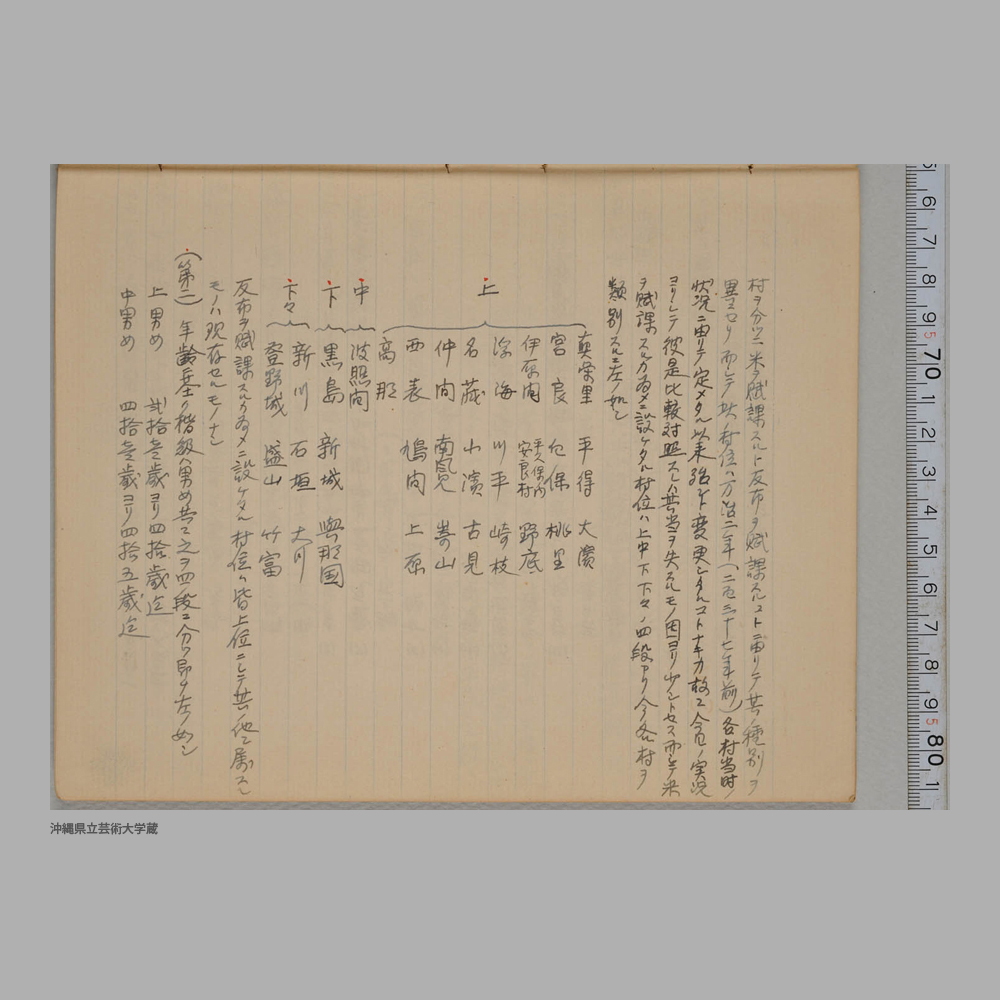 村ヲ分ツニ米ヲ賦課スルト反布ヲ賦課スルコトニ由リテ其ノ種別ヲ
異ニセリ而シテ其ノ村位ハ万治二年(二百三十七年前)各村当時ノ
状況ニ由リテ定メタル以来殆ド変更シタルコトナキカ故ニ今日ノ実況
ヨリシテ彼是比較対照スレハ其当ヲ失スルモノ因ヨリ少シトセス而シテ米
ヲ賦課スルカ為メニ設ケタル村位ハ上中下下々ノ四段アリ今各村ヲ
類別スルニ左ノ如シ
上
真栄里 平得 大濱
宮良 白保 桃里
伊原間 平久保内安良村 野底
深海 川平 崎枝
名蔵 小濱 古見
仲間 南風見 嵩山
西表 鳩間 上原
高那
中
波照間
下
黒島 新城 與那国
下々
新川 石垣 大川
登野城 盛山 竹富
反布ヲ賦課スルカ為メニ設ケタル村位ハ皆上位ニシテ其ノ他ニ属スル
モノハ現存セルモノナシ
(第二) 年齢ニ基ク階級ハ男女共ニ之ヲ四段ニ分ツ即チ左ノ如シ
上男女 貳拾壱歳ヨリ四拾歳迄
中男女 四拾壱歳ヨリ四拾五歳迄
沖縄県立芸術大学蔵